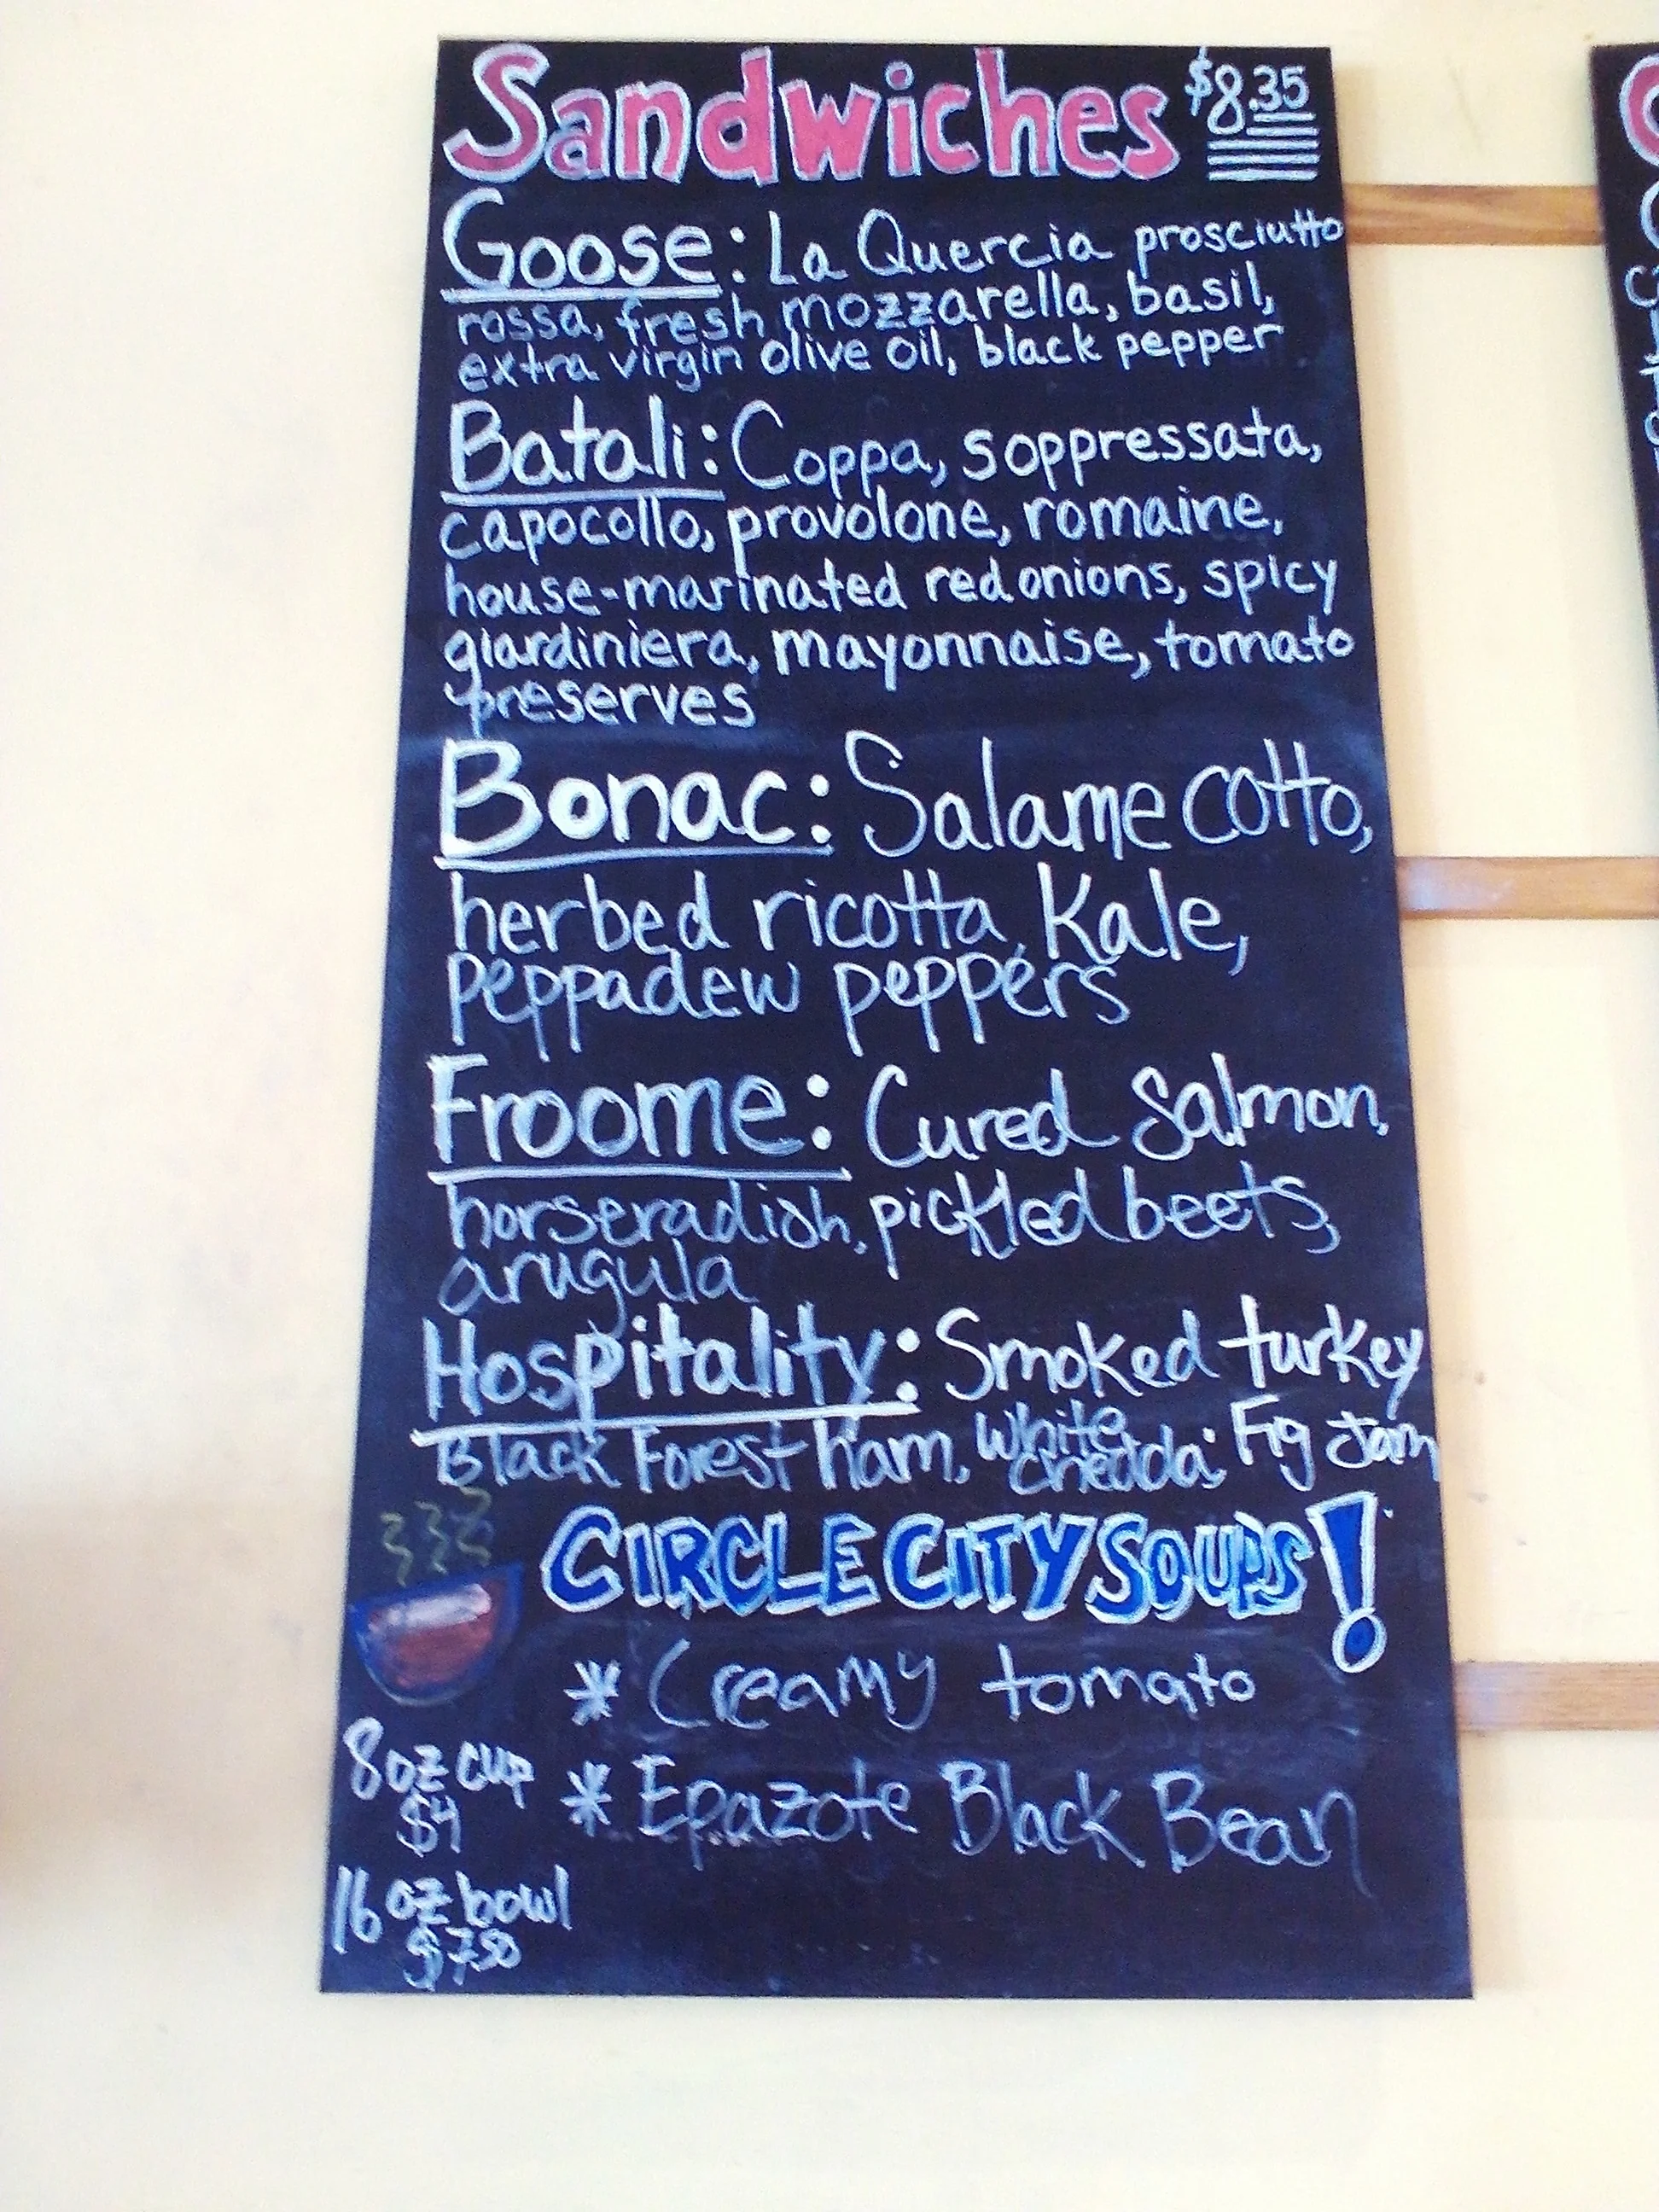 Sandwiches $8.35
Goose: La Quercia prosciutto
rossa, fresh mozzarella, basil,
extra virgin olive oil, black pepper
Batali: Coppa, soppressata,
capocollo, provolone, romaine,
house-marinated red onions, spicy
giardiniera, mayonnaise, tomato
preserves
Bonac: Salame cotto,
herbed ricotta, Kale,
peppadew peppers
Froome: Cured Salmon,
horseradish, pickled beets,
arugula
Hospitality: Smoked turkey
Black Forest ham, White Chedda, Fig Jam
CIRCLE CITY SOUPS!
* Creamy tomato
8 oz cup
$4
* Epazote Black Bean
16 oz bowl
$7.50